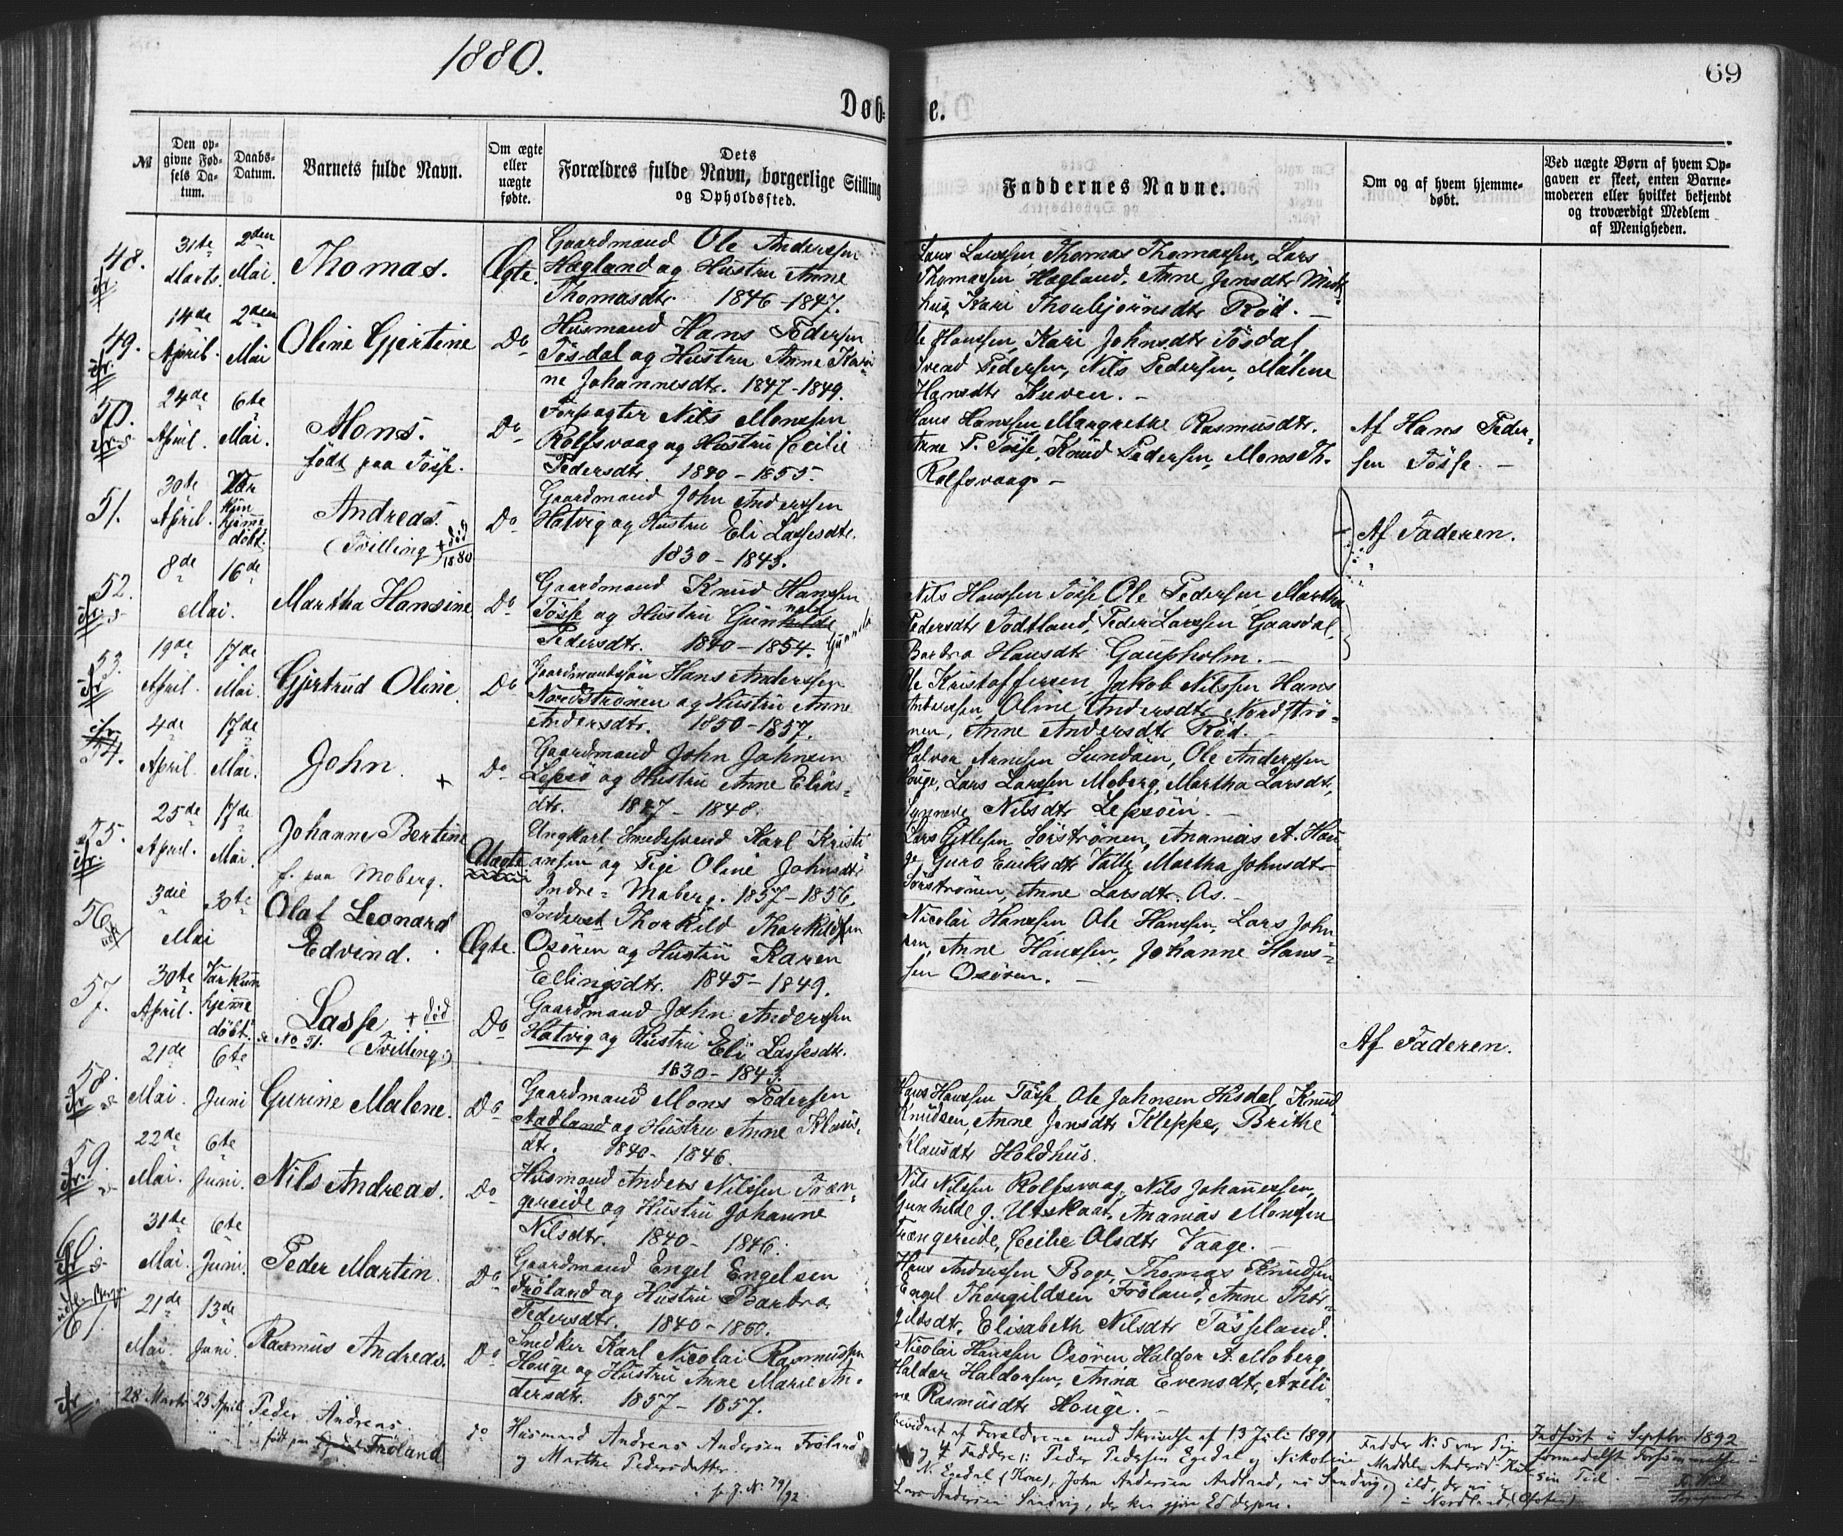 1880.
69
Døb-
te.
№
Den op-
givne Fød-
sels Da-
tum.
Daabs-
Datum.
Barnets fulde Navn.
Om ægte
eller
uægte
fødte.
Dets
Forældres fulde Navn, borgerlige Stilling
og Opholdssted.
Faddernes Navne.
Om og af hvem hjemme-
døbt.
Ved uægte Børn af hvem Op-
gaven er skeet, enten Barne-
moderen eller hvilket bekjendt
og troværdigt Medlem
af Menigheden.
48.
31te Marts.
2den Mai.
Thomas.
Ægte.
Gaardmand Ole Anderssen
Hægland og Hustru Anne
Thomasdtr. 1846-1847.
Lars Larssen Thomas Thomassen, Lars
Thomassen Hægland, Anne Jensdtr
Kari Thorbjørnsdtr Röd. -
49.
14de April.
2den Mai
Oline Gjertine
Do
Husmand Hans Pedersen
Tösdal og Hustru Anne Kari-
ne Johannesdtr. 1847-1849.
Ole Hanssen, Kari Johnsdtr Tösdal,
Svend Pedersen, Nils Pedersen, Malene
Hansdtr Kuven. -
50.
24de April.
6te Mai.
Mons.
födt paa Tösse.
Do
Forpagter Nils Monssen
Rolfsvaag og Hustru Cecilie
Pedersdtr. 1840-1855.
Hans Hanssen Margrethe Rasmusdtr.
Anne P. Tösse, Knud Pedersen, Mons Th.
Rolfsvaag -
Af Hans Peder-
sen Tösse. -
51.
30te April.
Var
kun
hjemme
döbt.
Andreas.
(Tvilling) + död
1880
Do
Gaardmand John Anderssen
Hatvig og Hustru Eli Lassesdtr.
1830-1843.
Af Faderen.
52.
8de Mai.
16de
Martha Hansine
Do
Gaardmand Knud Hanssen
Tösse og Hustru Gunhilde
Pedersdtr. 1840-1854.
Nils Hanssen Tösse, Ole Pedersen, Martha
Pedersdtr Todtland, Peder Larssen Gaasdal,
Barbra Hansdtr Gaupholm. -
53.
19de April.
17de Mai.
Gjertrud Oline
Do
Gaardmandssön Hans Anderssen
Nordströnen og Hustru Anne
Andersdtr. 1850-1857.
Ole Kristoffersen Jakob Nilssen Hans
Anderssen, Oline Andersdtr Nordströ-
nen, Anne Andersdtr Röd. -
54.
4de April.
17de Mai.
John. +
Do
Gaardmand John Johnsen
Lepsö og Hustru Anne Elias-
dtr. 1847-1848.
Halvor Arnesen Sundöen, Ole Anderssen
Houge, Lars Larssen Moberg, Martha Larsdtr,
Synneve Nilsdtr Lepsöen. -
55.
25de April.
17de Mai.
Johanne Bertine
f. paa Moberg.
Uægte
Ungkarl Smedesvend Karl Kristi-
ansen og Pige Oline Johnsdtr
Indre-Moberg. 1857-1856.
Lars Gjtlesen Sörströnen, Ananias A. Hau-
ge, Guro Eriksdtr Valle Martha Johnsdtr
Sörströnen, Anne Larsdtr. Os. -
56.
3die Mai
30te
Olaf Leonard
Edvind.
Ægte
Thorkild Thorkildsen
Osören og Hustru Karen
Ellingsdtr. 1845-1849.
Nicolai Hanssen, Ole Hanssen, Lars John-
sen, Anne Hanssen, Johanne Hans-
sen Osören. -
57.
30te April.
Var kun
hjemme
döbt.
Lasse + död
se No 51. (Tvilling.)
Do
Gaardmand John Anderssen
Hatvig og Hustru Eli Lassesdtr.
1830-1843.
Af Faderen.
58.
21de Mai.
6te Juni
Gurine Malene.
Do
Gaardmand Mons Pedersen
Aadland og Hustru Anne Klaus-
dtr. 1840-1846.
Hans Hanssen Tösse Ole Johnsen Hisdal, Knud
Knudsen, Anne Jensdtr Kleppe, Brithe
Klausdtr Holdhus.
59.
22de Mai.
6te Juni.
Nils Andreas.
Do
Husmand Anders Nilssen Træn-
gereide og Hustru Johanne
Nilsdtr. 1840-1846.
Nils Nilssen Rolfsvaag, Nils Johannessen,
Gunhilde J. Utskaat, Ananias Monssen
Trængereide, Cecilie Olsdtr Vaage. -
60.
31te Mai.
6te Juni.
Peder Martin.
Do
Gaardmand Engel Engelsen
Fröland og Hustru Barbra
Pedersdtr. 1840-1850.
Hans Anderssen Boge, Thomas Knudsen
Engel Thorgildsen Fröland, Anne Thor-
gildsdtr. Elisabeth Nilsdtr Tösseland.
61.
21de Mai.
13de Juni.
Rasmus Andreas.
Do
Snedker Karl Nicolai Rasmussen
Houge og Hustru Anne Marie An-
dersdtr. 1857-1857.
Nicolai Hanssen Osören Haldor A. Moberg,
Haldor Haldorsen, Anna Evensdtr, Axeli-
ne Rasmusdtr Houge. -
28 Marts
25 April
Peder Andreas
født paa Fröland
do
Husmand Andreas Andersen Fröland
og Marthe Pedersdatter
p. J. N. 79/92
af Forældrene med Skrivelse af 13 Juli 1891
og 4 Faddere: Peder Pedersen Egedal og Nikoline
N. Egedal (Kone), John Andersen Aadland, nu Sandvig,
Lars Andersen Sandvig, der kan gjøre Ed derpaa.
Fadder N: 5 var Pige
i Nordland (Ofoten)
Indført i Septbr 1892